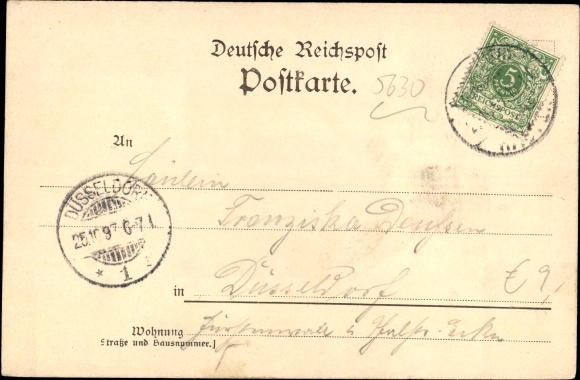 Deutsche Reichspost
Postkarte.
5630
5
REICHSPOST
An
Fräulein
Franziska
DÜSSELDORF
25.10.97. 6-7
* 1
in Düsseldorf
€ 9,
Wohnung
Straße und Hausnummer.]